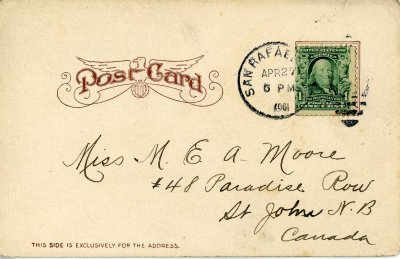 Post Card
SAN RAFAEL
APR 27
6 PM
1
ONE CENT
Miss M. E. A. Moore
#48 Paradise Row
St John N.B
Canada
THIS SIDE IS EXCLUSIVELY FOR THE ADDRESS.